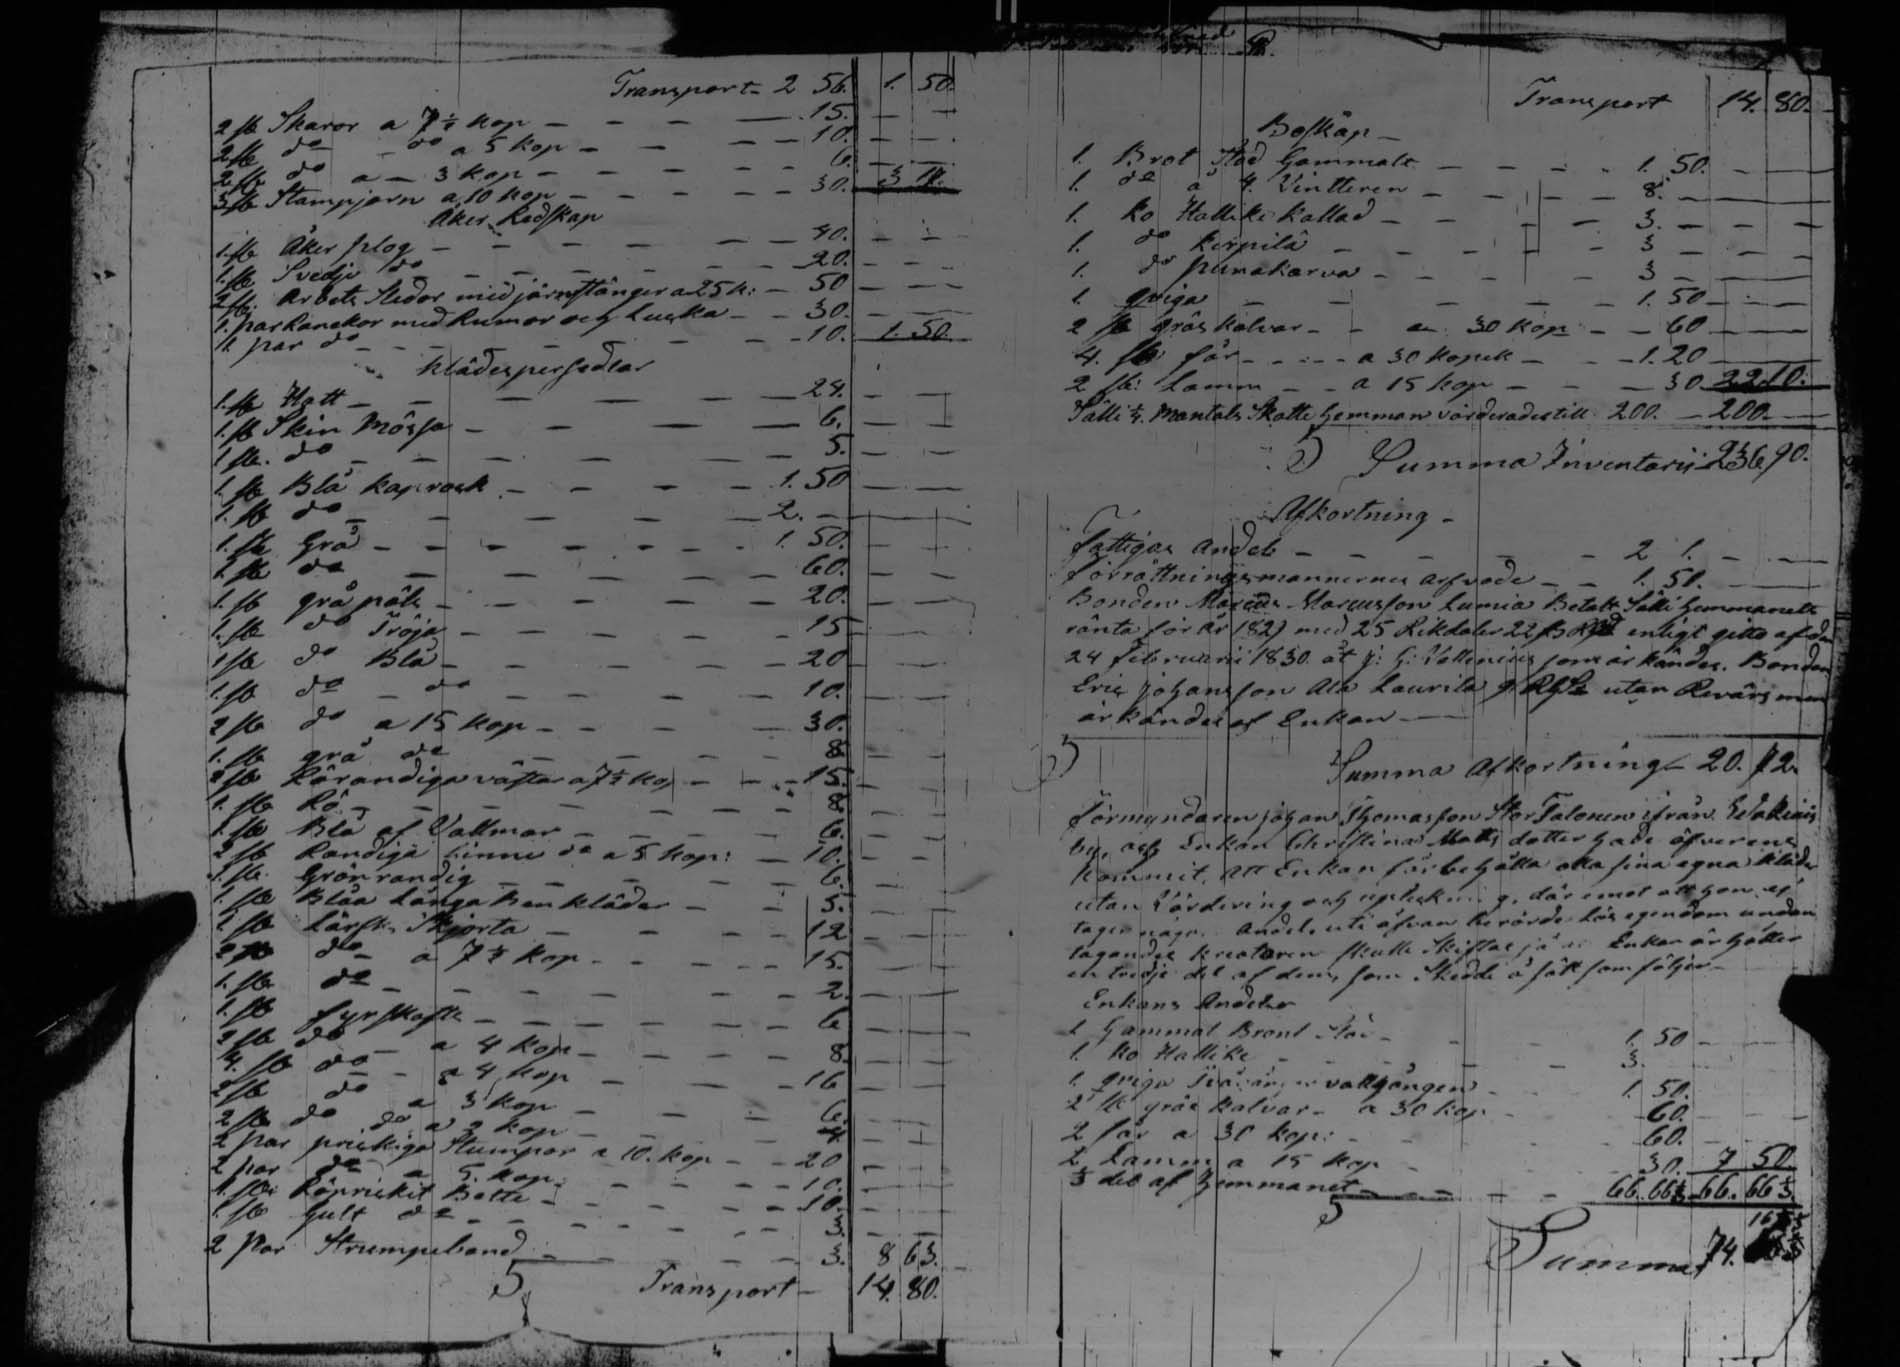 Transport - 2 56. 1. 50.
2 st Skaror a 7½ kop 15.
2 st do do a 5 kop 10.
2 st do a 3 kop 6.
3 st Stampjärn a 10 kop 30. 3 17.
Åker Redskap
1 st Åker plog 40.
1 st Svedje do 20.
2 st. Arbets Slädor med järnstänger a 25 k: 50
1. par med och 30.
1 par do 10. 1. 50.
Klädespersedlar
1. st Hatt 24.
1. st Skin Mössa 6.
1 st. do 5.
1. st Blå kaprock 1. 50
1. st do 2.
1. st Grå 1. 50.
1. st do 60.
1. st grå päls 20.
1. st do Tröja 15
1 st do Blå 20
1. st do do 10.
2 st do a 15 kop 30.
1. st grå do 8.
2 st västar a 7½ kop 15.
1. st 8.
1. st Blå af Vallmar 6.
2 st Randiga Linne do a 5 kop: 10.
1. st. Grönrandig 6.
1. st Blåa Långa Benkläder 5.
1. st Lärfts Skjorta 12
2 st do a 7½ kop 15.
1. st do 2.
1. st fyrskaft 6
2 st do a 4 kop 8.
4. st do a 4 kop 16
2 st do a 3 kop 6.
2 st do do a 2 kop 4.
2 par prickiga Stumpor a 10. kop 20
2 par do a 5. kop 10.
1. st. 10.
1. st Gult do 3.
2 par Strumpeband 3. 8 63.
Transport 14. 80.
Transport 14. 80.
Boskap
1. Brot Stod Gammalt 1. 50.
1. do a 4. Vintteren 8.
1. Ko Hallike kallad 3.
1. do kirpilä 3
1. do punakarva 3
1. qviga 1. 50
2 st gräs kalvar a 30 kop 60
4. st får a 30 kopek 1. 20
2 st: Lamm a 15 kop 30 22. 10.
Sälli ¼. Mantals Skatte Hemman värderades till 200. 200.
Summa Inventarii 236 90.
Afkortning
Fattigas Andel 2 1.
förrättningsmannernes arfvode 1. 50.
Bonden Marcus Marcusson Lumia Betalt Sälli Hemmanets
ränta för År 1829 med 25 Rikdaler 22 enligt qvitto af den
24 februarii 1830 åt J: G: Vallenius som är kändes. Bonden
Eric Johansson Ala Laurila 9 utan Revärs men
är kändes af Enkan
Summa Afkortning 20. 72.
Förmyndaren Johan Thomasson Stor Talonen ifrån
by, och Enkan Christina Matts dotter hade öfverens
kommit, att Enkan får behålla alla sina egna kläder
utan Värdering och där emot att hon ej
tager någon Andel uti ofvan berörde Lös egendom undan
tagandes kreaturen skulle Skiftas Enkan
en tredje del af dem, som Skedde å sätt som följer
Enkans Andelar
1 Gammal Brunt Stod 1. 50
1. Ko Hallike 3.
1. qviga vallgången 1. 50.
2 st gräs kalvar a 30 kop 60.
2 får a 30 kop: 60.
2 Lamm a 15 kop 30. 7 50.
⅓ del af Hemmanet 66. 66⅔ 66. 66⅔
Summa 74. 16⅔